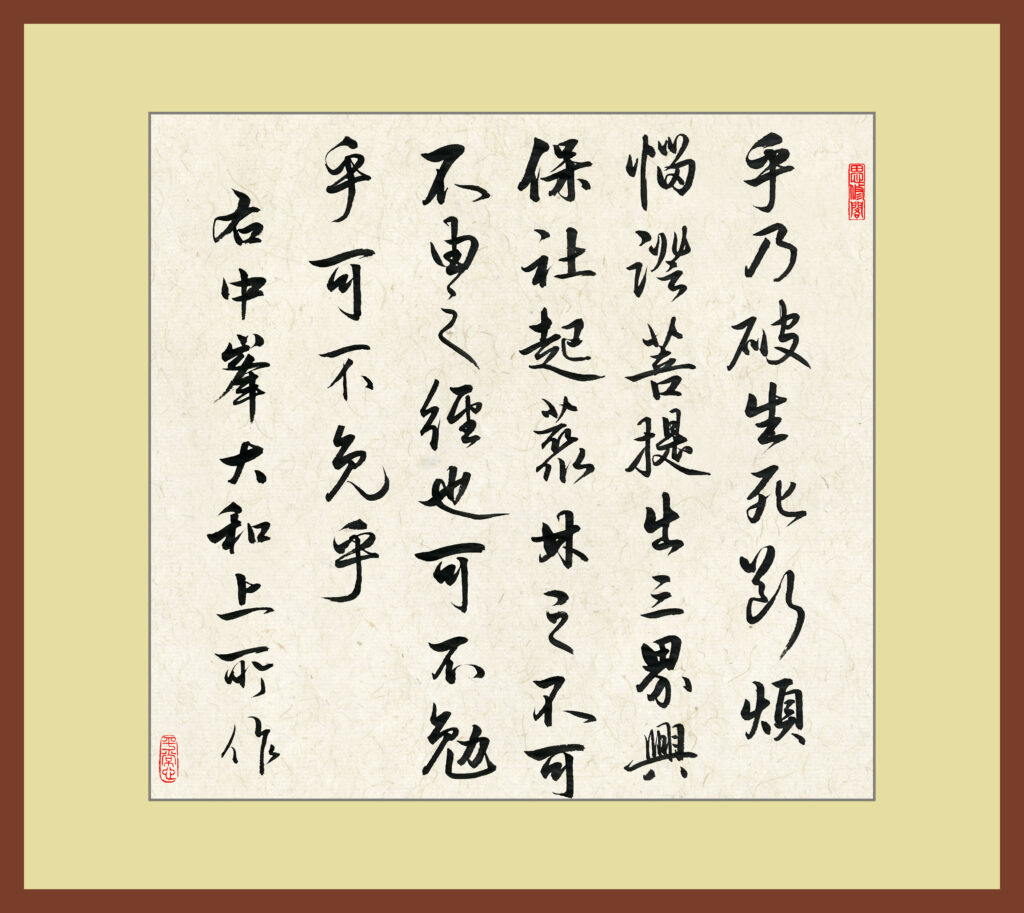 思修閣
乎乃破生死斷煩
惱證菩提出三界興
保社起藂林之不可
不由之經也可不勉
乎可不免乎
右中峯大和上所作
平常心